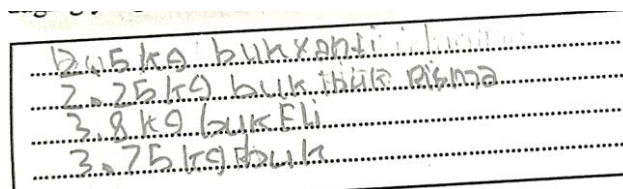 2.5 kg buk yanti
2.25 kg buk Risma
3.8 kg buk Eli
3.75 kg buk